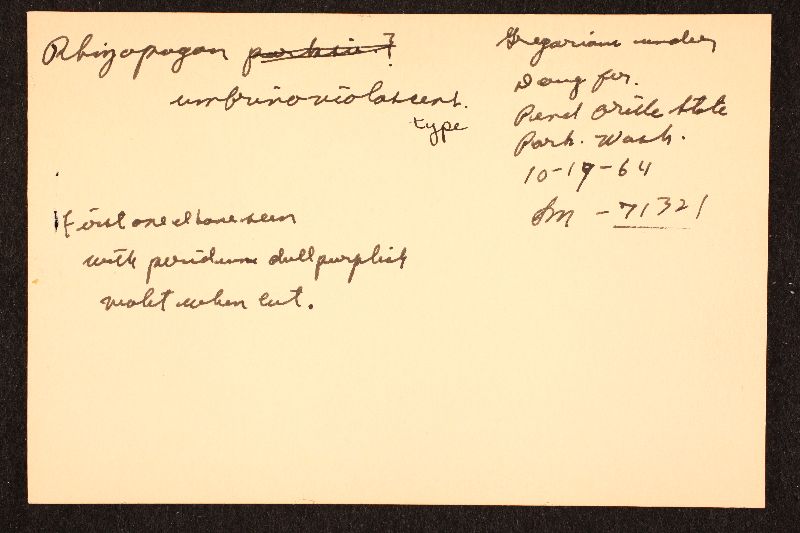 Rhizopogon parksii.?
umbrinoviolascens.
type
First one I have seen
with peridium dull purplish
violet when cut.
Gregarious under
Doug fir.
Pend Orille State
Park. Wash.
10-19-64
Sm - 71321